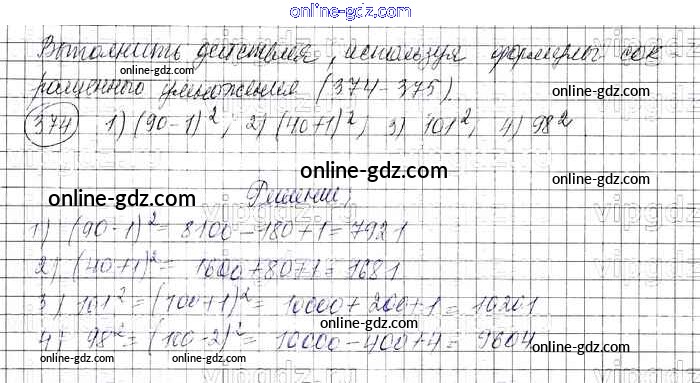 online-gdz.com
Выполнить действия, используя формулы сок-
ращенного умножения (374-375).
online-gdz.com
online-gdz.com
374 1) (90-1)²; 2) (40+1)²; 3) 101²; 4) 98²
online-gdz.com
online-gdz.com
online-gdz.com
Решение:
vipgdz.ru
1) (90-1)² = 8100-180+1=7921
2) (40+1)² = 1600+80+1=1681
online-gdz.com
online-gdz.com
3) 101² = (100+1)² = 10000+200+1=10201
online-gdz.com
4) 98² = (100-2)² = 10000-400+4=9604
online-gdz.com
online-gdz.com